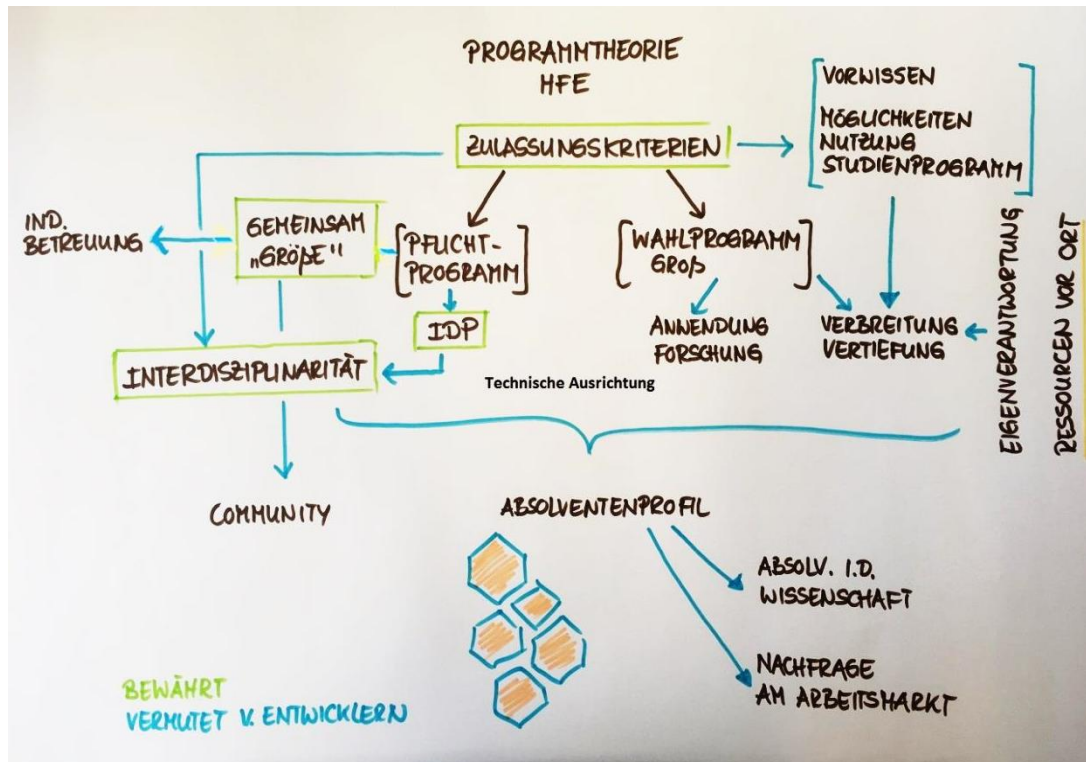 PROGRAMMTHEORIE
HFE
ZULASSUNGSKRITERIEN
VORWISSEN
MÖGLICHKEITEN
NUTZUNG
STUDIENPROGRAMM
IND.
BETREUUNG
GEMEINSAM
„GRÖßE"
PFLICHT-
PROGRAMM
WAHLPROGRAMM
GROß
IDP
ANWENDUNG
FORSCHUNG
VERBREITUNG
VERTIEFUNG
EIGENVERANTWORTUNG
RESSOURCEN VOR ORT
INTERDISZIPLINARITÄT
Technische Ausrichtung
COMMUNITY
ABSOLVENTENPROFIL
ABSOLV. I.D.
WISSENSCHAFT
NACHFRAGE
AM ARBEITSMARKT
BEWÄHRT
VERMUTET V. ENTWICKLERN